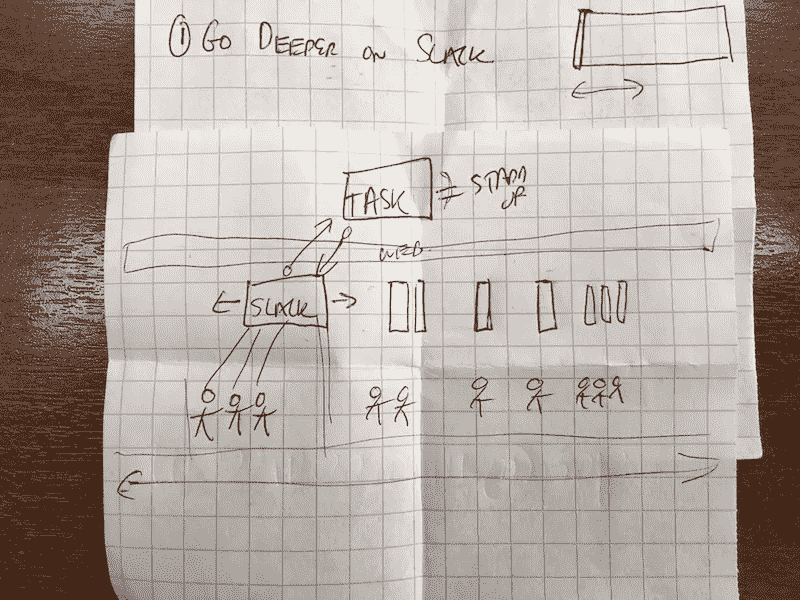 ① GO DEEPER ON SLACK
TASK
STAND
UP
WEB
SLACK